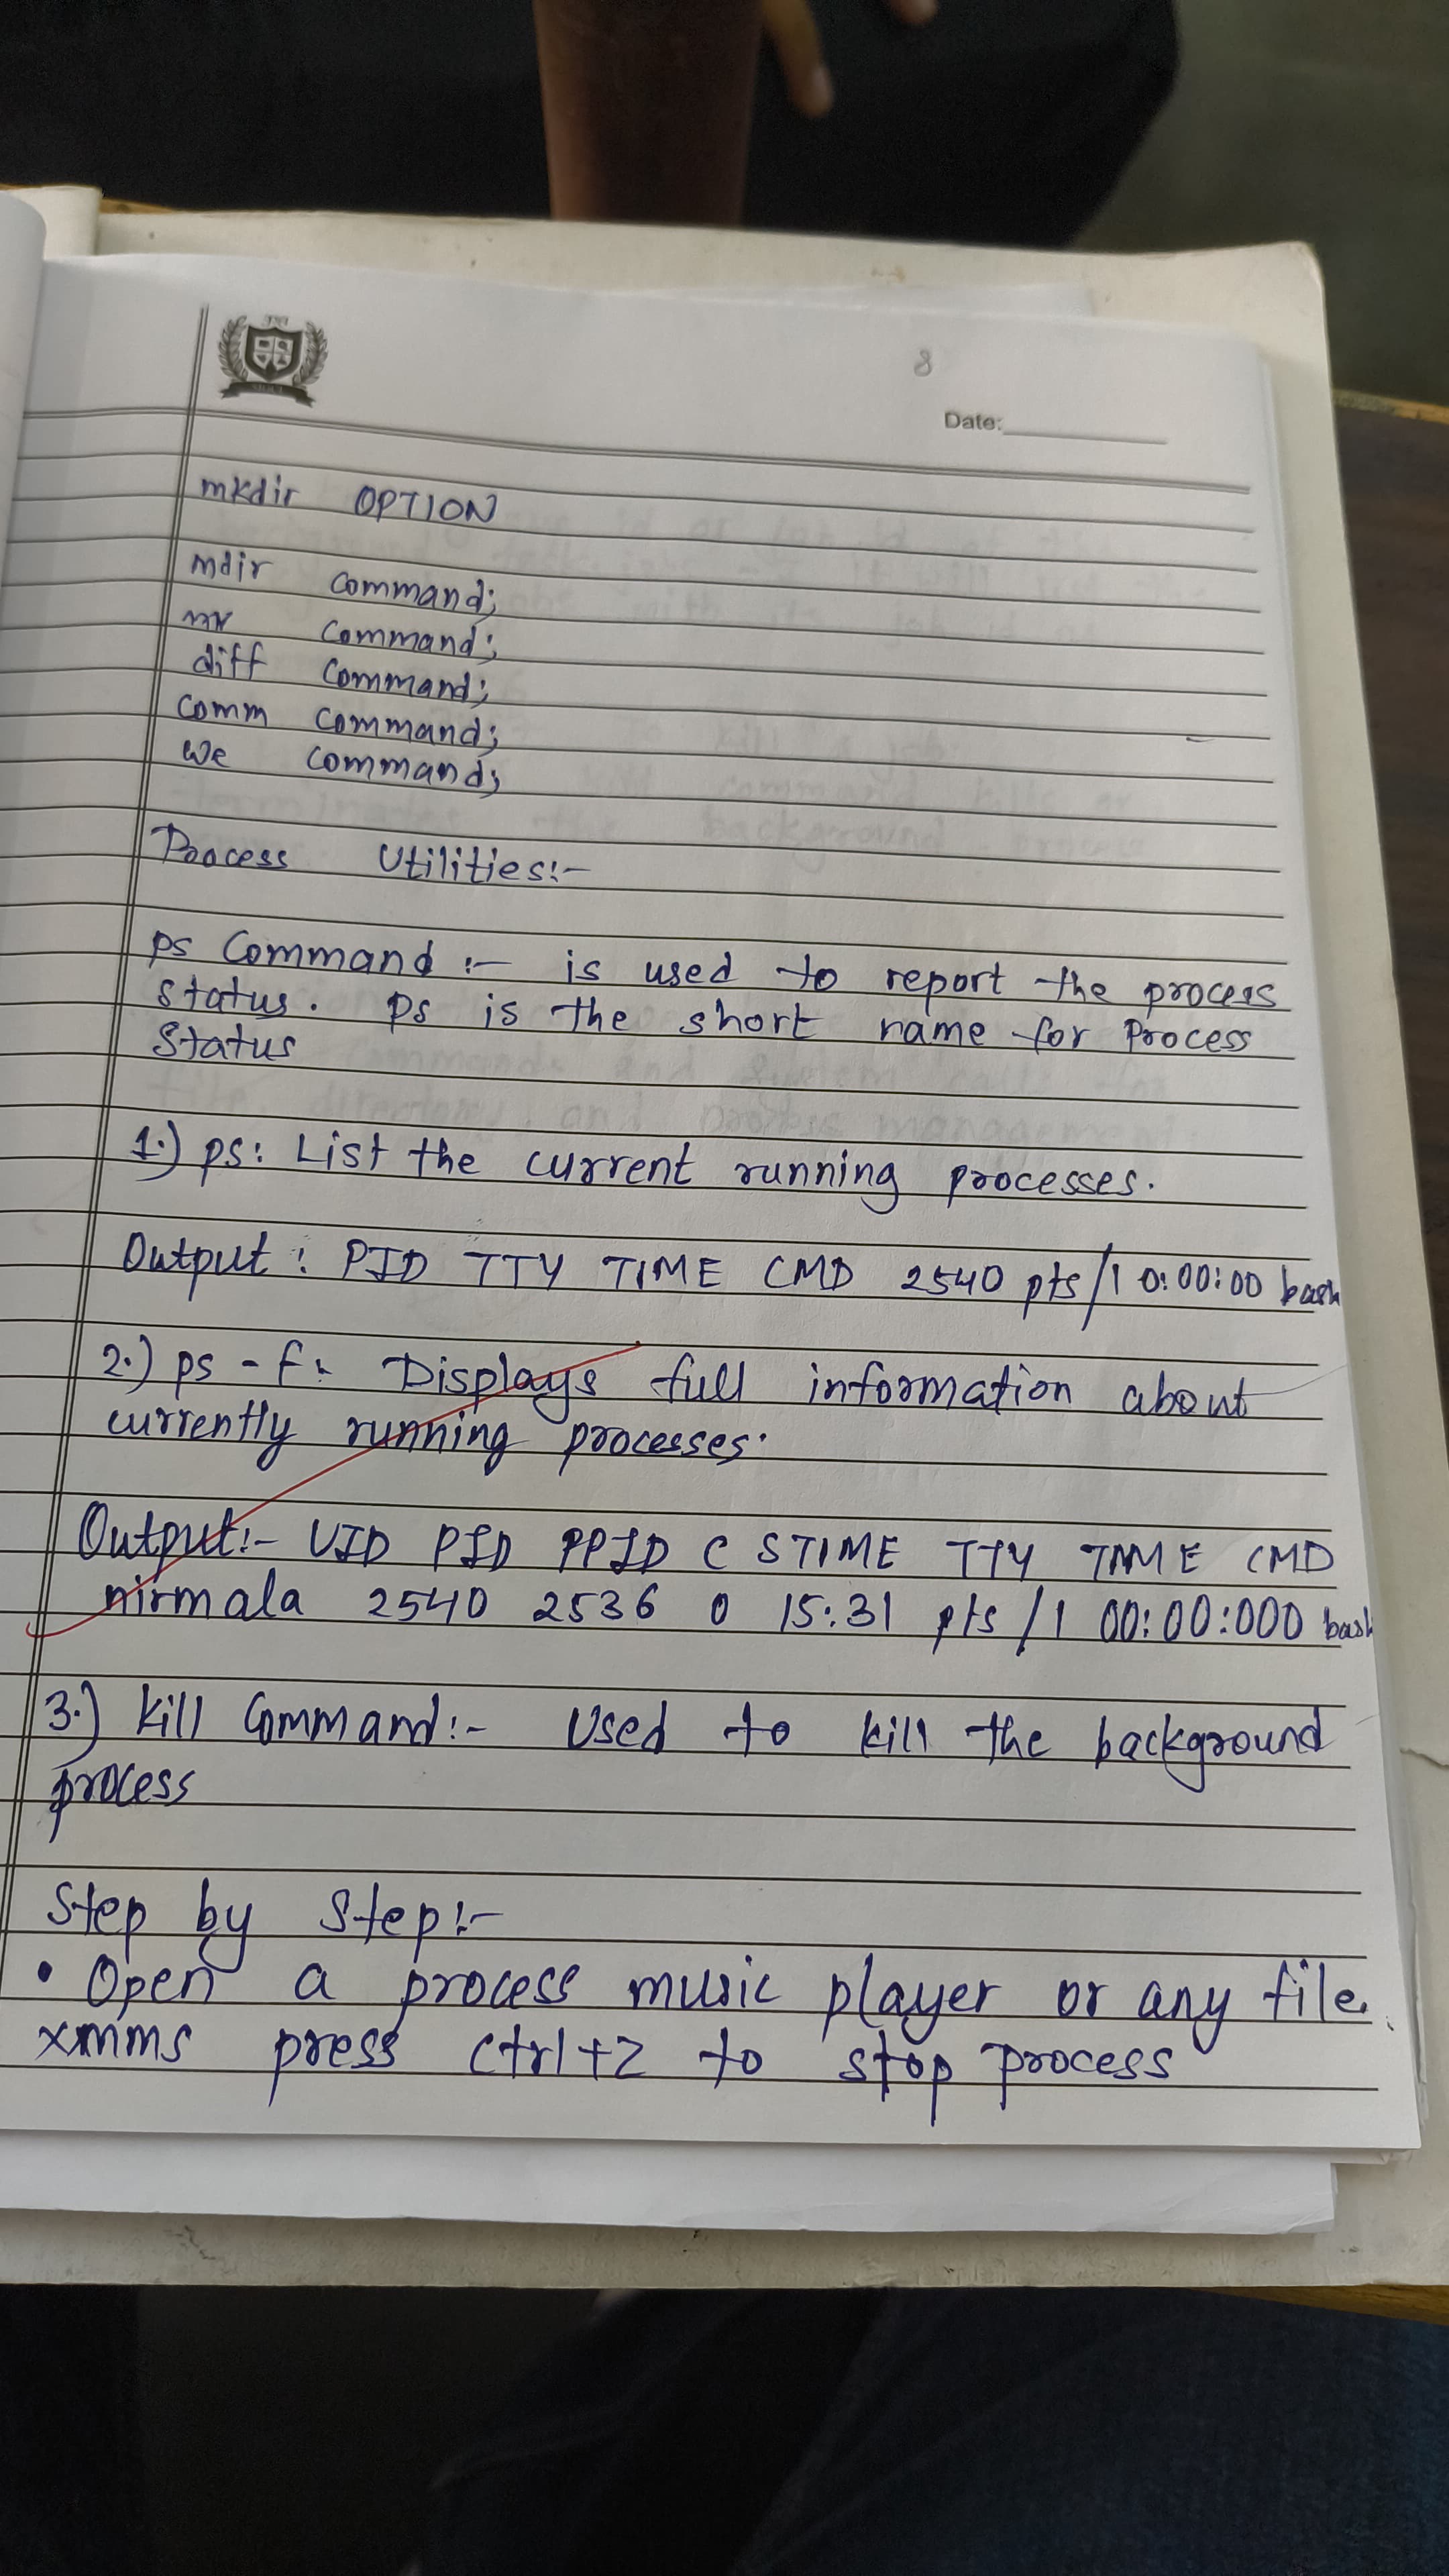 8
Date:
mkdir OPTION
mdir command;
mv command;
diff command;
comm command;
we command;
Process Utilities:-
ps Command :- is used to report the process
status. ps is the short name for Process
Status
1.) ps: List the current running processes.
Output : PID TTY TIME CMD 2540 pts/1 0:00:00 bash
2.) ps - f: Displays full information about
currently running processes.
Output:- UID PID PPID C STIME TTY TIME CMD
nirmala 2540 2536 0 15:31 pts/1 00:00:000 bash
3.) Kill Command:- Used to kill the background
process
Step by Step:-
• Open a process music player or any file.
xmms press ctrl+z to stop process